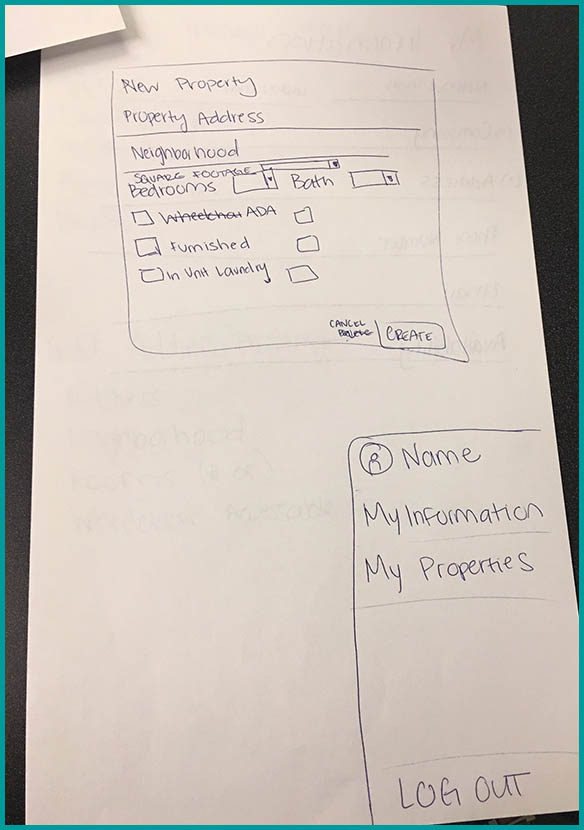 New Property
Property Address
Neighborhood
SQUARE FOOTAGE
Bedrooms Bath
ADA
Furnished
In Unit Laundry
CANCEL
CREATE
Name
My Information
My Properties
LOG OUT